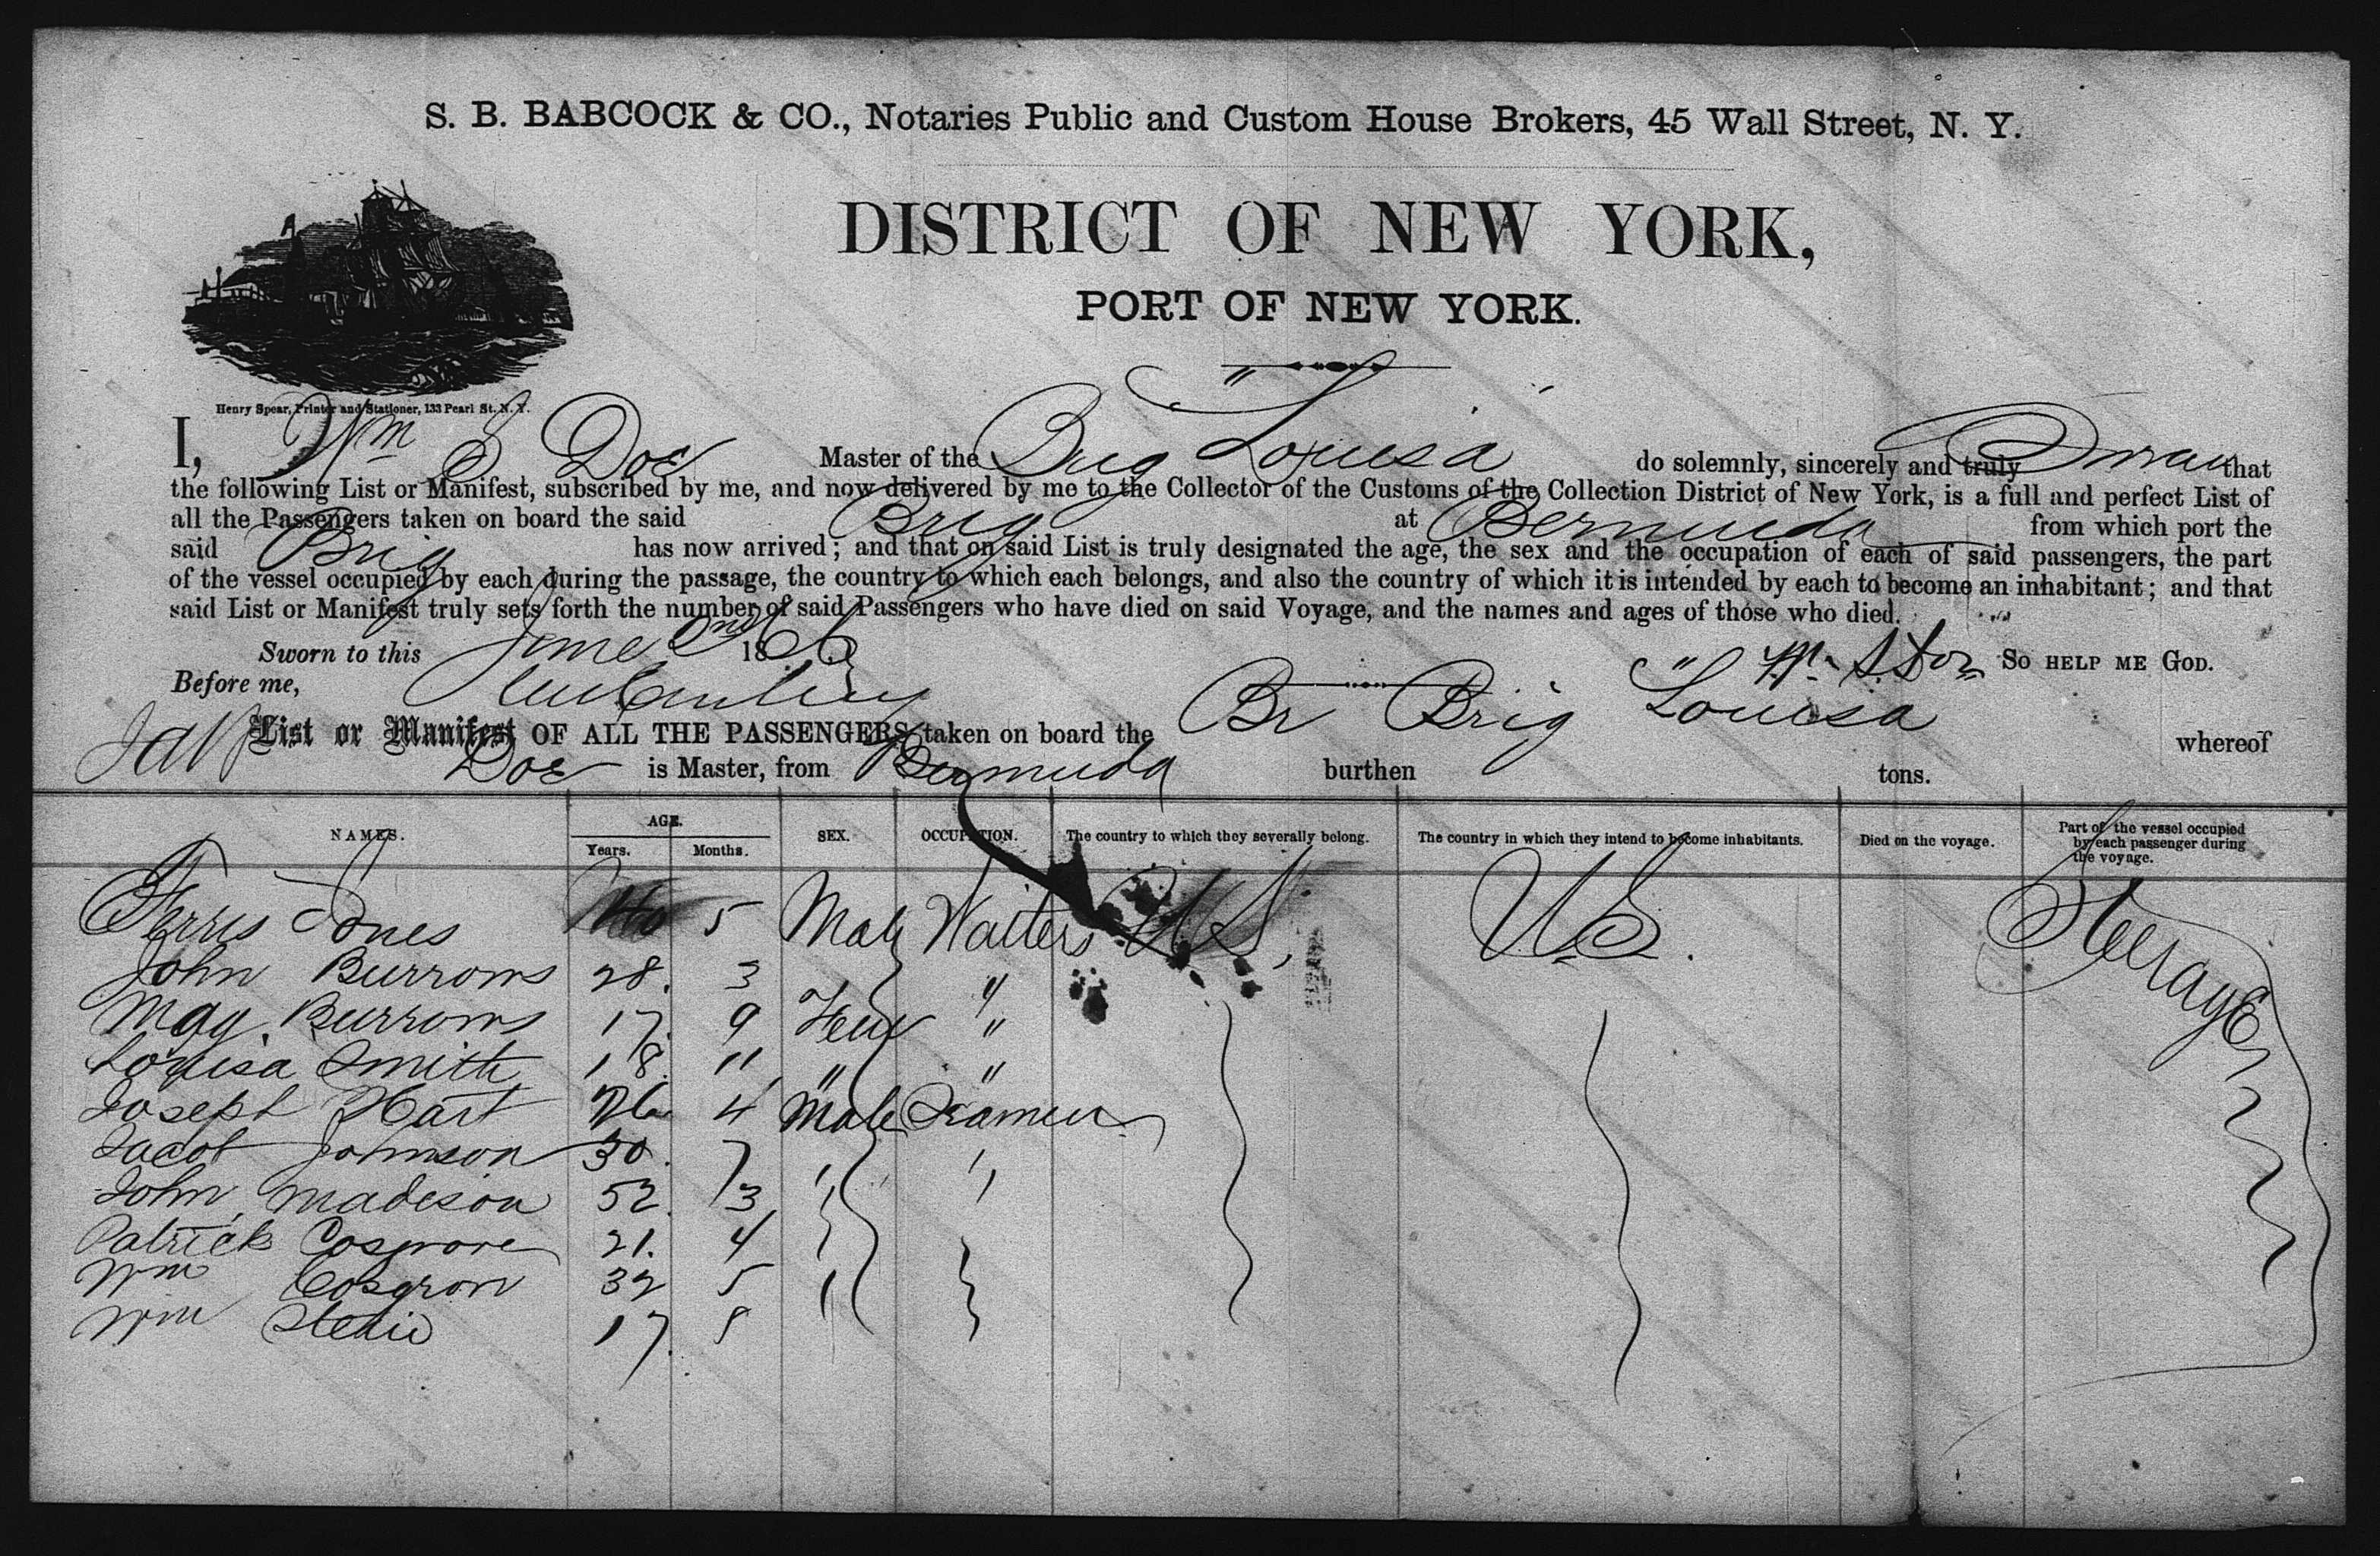 S. B. BABCOCK & CO., Notaries Public and Custom House Brokers, 45 Wall Street, N. Y.
DISTRICT OF NEW YORK,
PORT OF NEW YORK.
Henry Spear, Printer and Stationer, 133 Pearl St. N. Y.
I, Wm S Doe Master of the Brig "Louisa" do solemnly, sincerely and truly Swear that
the following List or Manifest, subscribed by me, and now delivered by me to the Collector of the Customs of the Collection District of New York, is a full and perfect List of
all the Passengers taken on board the said Brig at Bermuda from which port the
said Brig has now arrived; and that on said List is truly designated the age, the sex and the occupation of each of said passengers, the part
of the vessel occupied by each during the passage, the country to which each belongs, and also the country of which it is intended by each to become an inhabitant; and that
said List or Manifest truly sets forth the number of said Passengers who have died on said Voyage, and the names and ages of those who died.
Sworn to this June 2nd 1866 Wm S. Doe SO HELP ME GOD.
Before me,
List or Manifest OF ALL THE PASSENGERS taken on board the Br Brig "Louisa whereof
Doe is Master, from Bermuda burthen tons.
NAMES. AGE. Years. Months. SEX. OCCUPATION. The country to which they severally belong. The country in which they intend to become inhabitants. Died on the voyage. Part of the vessel occupied by each passenger during the voyage.
Ferris Jones 5 Male Waiters U S, U.S. Steerage
John Burrows 28. 3 "
May Burrows 17. 9 Fem "
Louisa Smith 18. 11 " "
Joseph Hart 26 4 Male Seamen
Jacob Johnson 30. 7 " "
John Madison 52. 3
Patrick Cosgrove 21. 4
Wm Cosgrove 32 5 "
Wm 17. 8